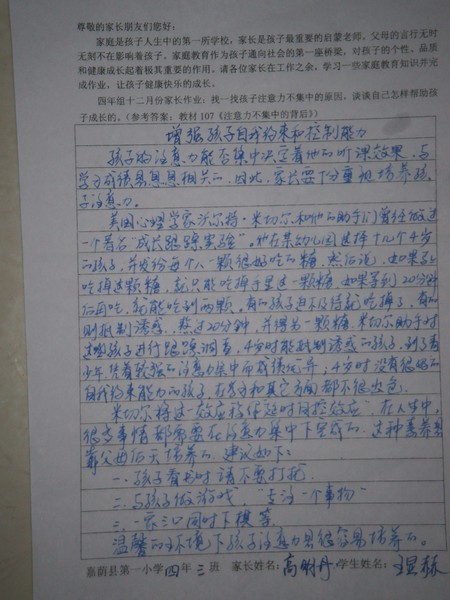 尊敬的家长朋友们您好：
家庭是孩子人生中的第一所学校，家长是孩子最重要的启蒙老师。父母的言行无时
无刻不在影响着孩子。家庭教育作为孩子通向社会的第一座桥梁，对孩子的个性、品质
和健康成长起着极其重要的作用。请各位家长在工作之余，学习一些家庭教育知识并完
成作业，让孩子健康快乐的成长。
四年组十二月份家长作业：找一找孩子注意力不集中的原因，谈谈自己怎样帮助孩
子成长的。（参考答案：教材 107《注意力不集中的背后》）
增强孩子自我约束和控制能力
孩子的注意力能否集中决定着他的听课效果，与
学习成绩息息相关的。因此，家长要下力量培养孩
子注意力。
美国心理学家沃尔特·米切尔和他的助手们曾经做过
一个著名"成长跟踪实验"。他在某幼儿园选择十几个4岁
的孩子，并发给每个人一颗很好吃的糖，然后说，如果马上
吃掉这颗糖，就只能吃手里这一颗糖，如果等到20分钟
后再吃，就能吃到两颗。有的孩子迫不及待就吃掉了，有的
则抵制诱惑，熬过20分钟，并得另一颗糖。米切尔助手对
这些孩子进行跟踪调查，4岁时能抵制诱惑的孩子，到了青
少年凭着较强的注意力集中而成绩优异，4岁时没有很好的
自我约束能力的孩子，在学习和其它方面都不很出色。
米切尔将这一效应称作"延时自控效应"，在人生中，
很多事情都需要在注意力集中下完成的，这种素养要
靠父母后天培养的。建议如下：
一、孩子看书时请不要打扰
二、与孩子做游戏，"专注一个事物"
三、一家三口同时下棋等
温馨的环境下孩子注意力是很容易培养的。
嘉荫县第一小学四年三班 家长姓名： 学生姓名：